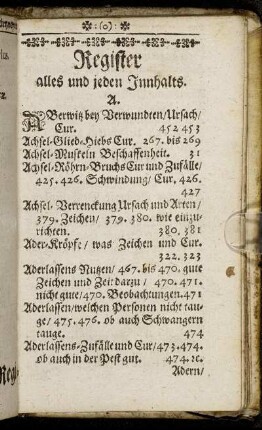 :(o):
Register
alles und jeden Innhalts.
A.
ABerwitz bey Verwundten/Ursach/
Cur. 452 453
Achsel-Glied-Hiebs Cur. 267. bis 269
Achsel-Muskeln Beschaffenheit. 31
Achsel-Röhrn-Bruchs Cur und Zufälle/
425. 426. Schwindung/ Cur. 426.
427
Achsel-Verrenckung Ursach und Arten/
379. Zeichen/ 379. 380. wie einzu-
richten. 380. 381
Ader-Kröpfe/ was Zeichen und Cur.
322. 323
Aderlassens Nutzen/ 467. bis 470. gute
Zeichen und Zeit darzu/ 470. 471.
nicht gute/470. Beobachtungen.471
Aderlassen/welchen Personen nicht tau-
ge/ 475. 476. ob auch Schwangern
tauge. 474
Aderlassens-Zufälle und Cur/473.474.
ob auch in der Pest gut. 474.2c.
Adern/